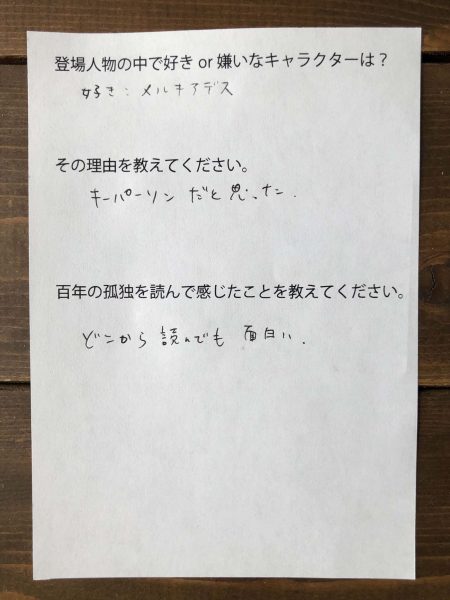 登場人物の中で好き or 嫌いなキャラクターは？
好き：メルキアデス
その理由を教えてください。
キーパーソンだと思った.
百年の孤独を読んで感じたことを教えてください。
どこから読んでも 面白い.